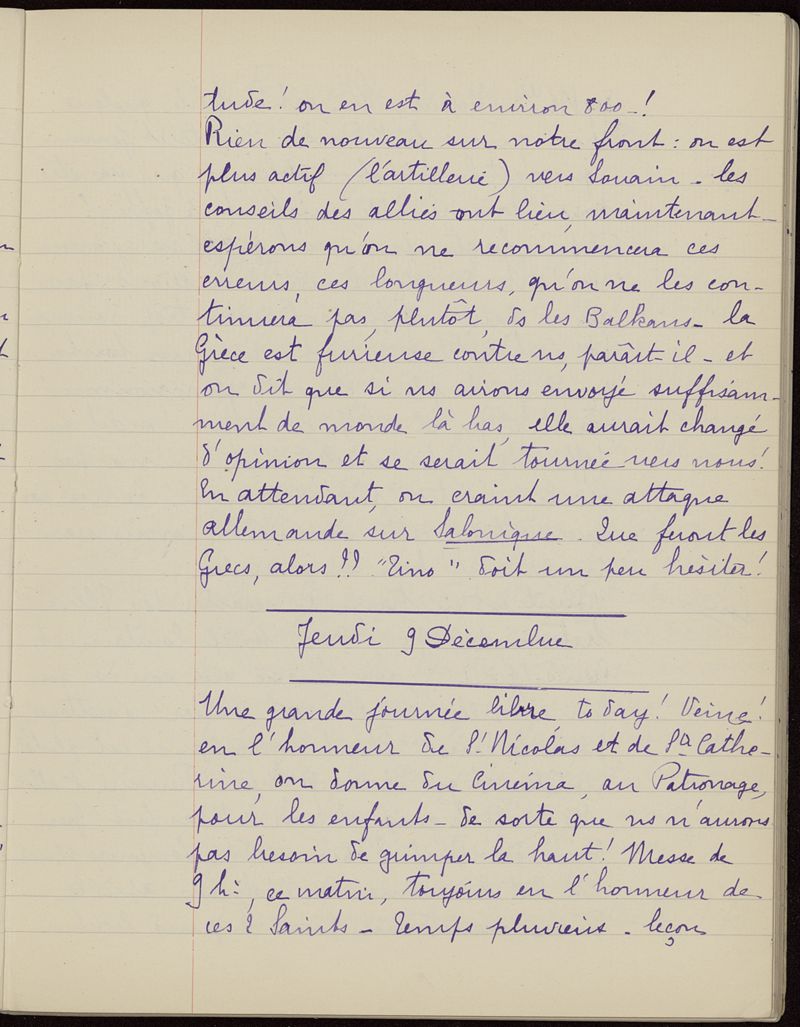 tude! on en est à environ 800_!
Rien de nouveau sur notre front : on est
plus actif (l'artillerie) vers Souain _ les
conseils des alliés ont lieu, maintenant _
espérons qu'on ne recommencera ces
erreurs, ces longueurs, qu'on ne les con-
tinuera pas, plutôt, ds les Balkans _ la
Grèce est furieuse contre ns, paraît-il _ et
on dit que si ns avions envoyé suffisam-
ment de monde là bas, elle aurait changé
d'opinion et se serait tournée vers nous!
En attendant, on craint une attaque
allemande sur Salonique. Que feront les
Grecs, alors!! "Tino" doit un peu hésiter!
Jeudi 9 Décembre
Une grande journée libre to day! Veine!
en l'honneur de St Nicolas et de Sta Cathe-
rine, on donne du Cinéma, au Patronage,
pour les enfants _ de sorte que ns n'aurons
pas besoin de grimper la haut! Messe de
9 h:, ce matin, toujours en l'honneur de
ces 2 Saints _ Temps pluvieux _ leçon